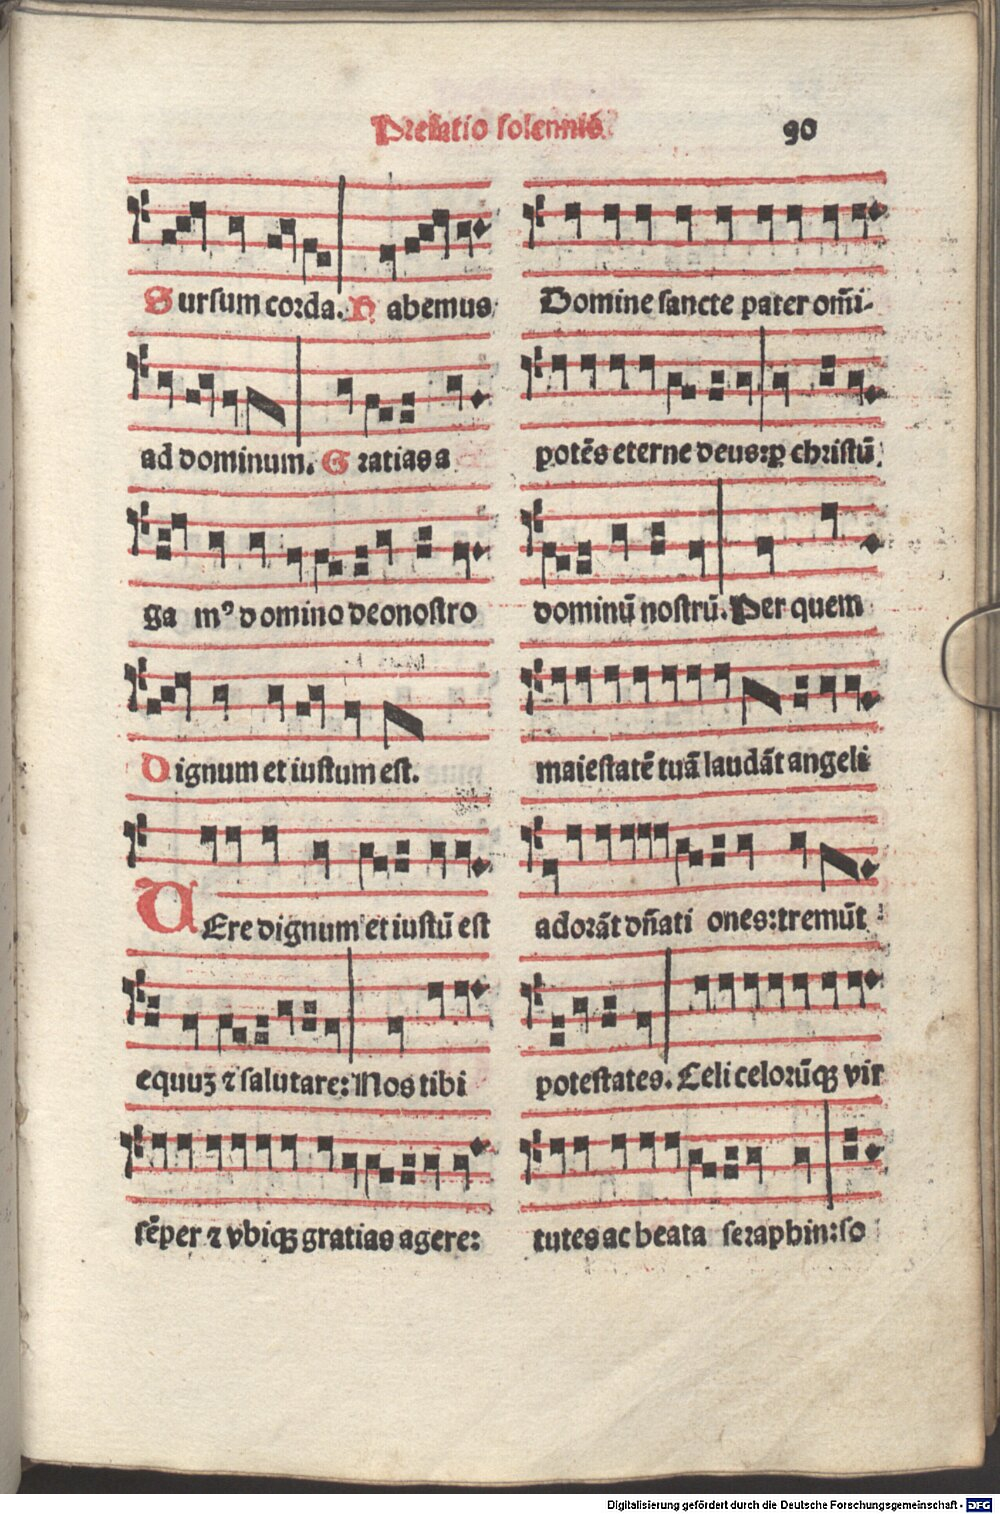 Prefatio solennis.
90
Sursum corda. Habemus
ad dominum. Gratias a
ga mꝰ domino deo nostro
Dignum et iustum est.
VEre dignum et iustū est
equuꝫ ⁊ salutare: Nos tibi
sēper ⁊ vbiqꝫ gratias agere:
Domine sancte pater om̄i-
potēs eterne deus: ꝑ christū
dominū nostrū. Per quem
maiestatē tuā laudāt angeli
adorāt dn̄ationes: tremūt
potestates. Celi celorūqꝫ vir
tutes ac beata seraphin: so
Digitalisierung gefördert durch die Deutsche Forschungsgemeinschaft - DFG